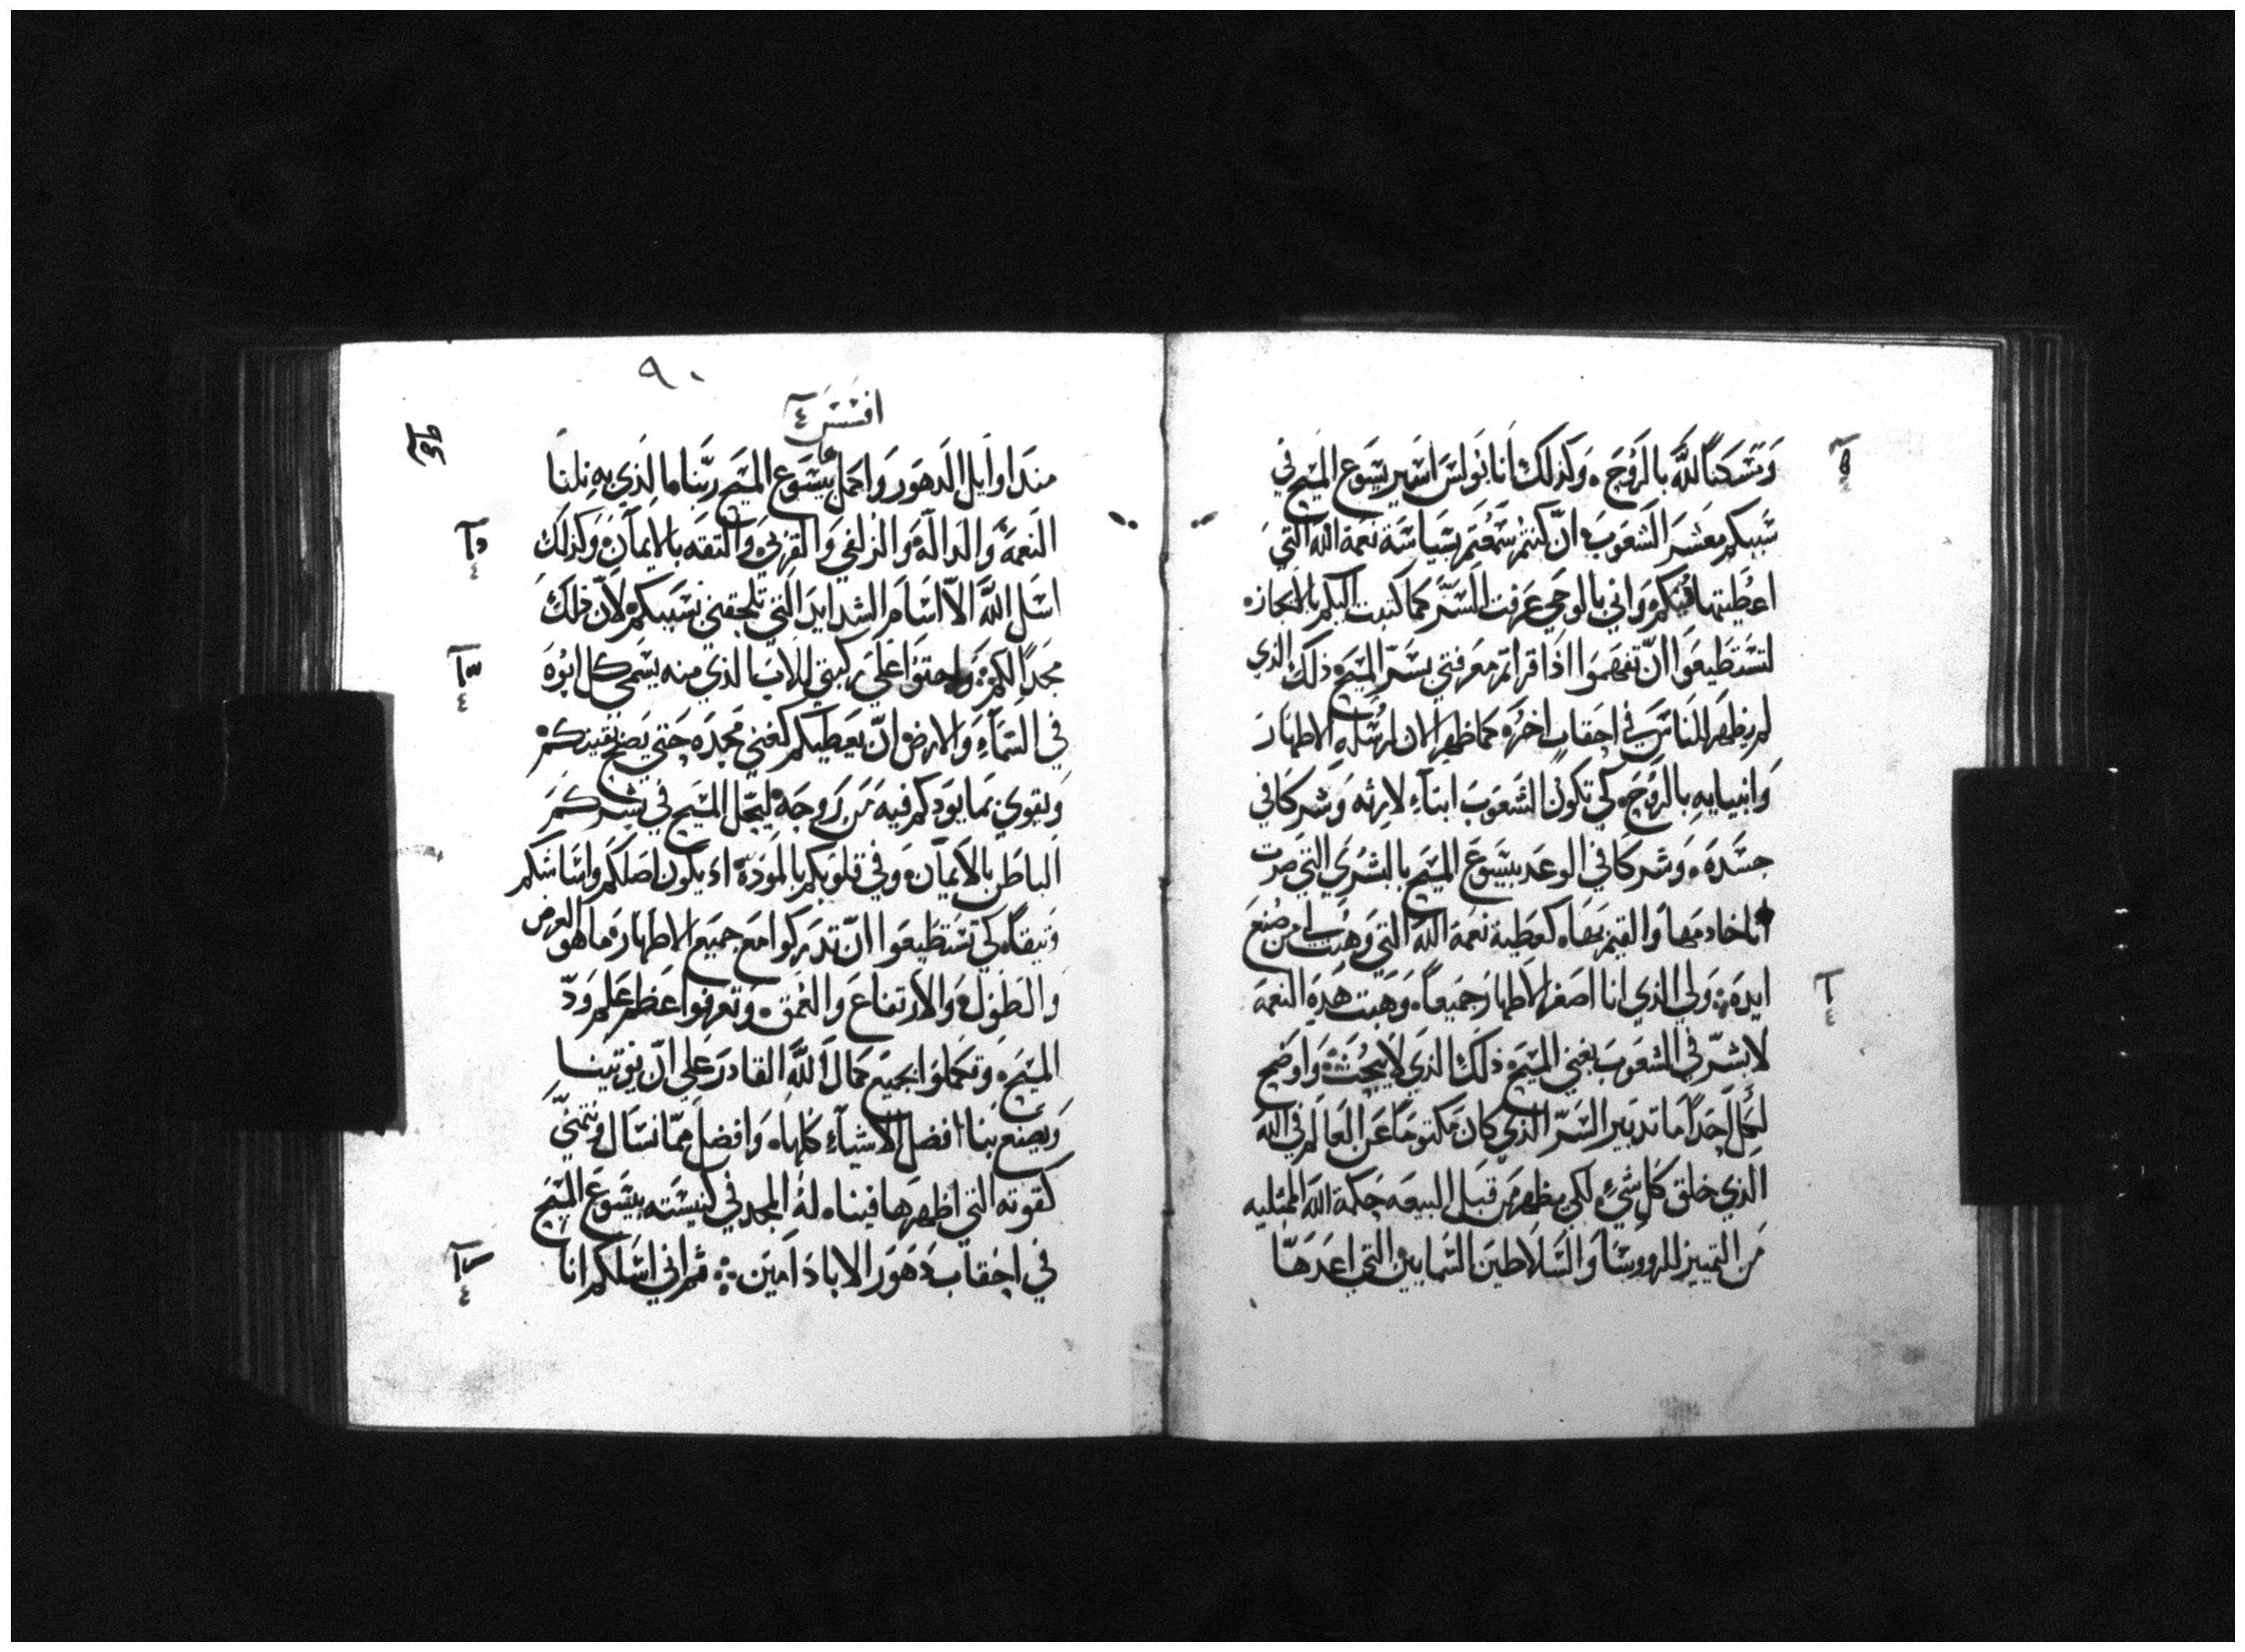 ومسكنا لله بالروح. وكذلك انا بولس اسير يسوع المسيح في
سببكم معشر الشعوب ان كنتم سمعتم بسياسة نعمة الله التي
اعطيتها فيكم واني بالوحي عرفت السر كما كتبت اليكم بالايجاز
لتستطيعوا ان تفهموا اذا قراتم معرفتي بسر المسيح ذلك الذي
لم يظهر للناس في احقاب اخره كما ظهر الان لرسله الاطهار
وانبيايه بالروح. كي تكون الشعوب ابناء لارثه وشركا في
جسده. وشركا في الوعد بيسوع المسيح بالبشري التي صرت
انا خادمها والقيم بها. كعطية نعمة الله التي وهبت لي من صنع
ايده. ولي الذي انا اصغر الاطهار جميعا. وهبت هذه النعمة
لابشر في الشعوب بغني المسيح ذلك الذي لا يبحث واوضح
لكل احد اما تدبير السر الذي كان مكتوما عن العالم في الله
الذي خلق كل شيء لكي يظهر من قبل البيعه حكمة الله الممتليه
من التمييز للرووسا والسلاطين السمايين التي اعدها
٩٠
افسس ٤
منذ اوايل الدهور واكمل بيسوع المسيح ربنا الذي به نلنا
النعمة والدالة والزلفي والقربي والثقه بالايمان وكذلك
اسل الله الا اسام الشدايد التي تلحقني بسببكم لان ذلك
مجدا لكم. واجثوا علي ركبتي للاب الذي منه يسمي كل ابوه
في السماء والارض ان يعطيكم كغني مجده حتي يصح يقينكم
ويقوي بما يودكم فيه من روحه ليحل المسيح في بشركم
الباطن بالايمان وفي قلوبكم بالموده اذ يكون اصلكم واساسكم
وثيقا. كي تستطيعوا ان تدركوا مع جميع الاطهار ما هو العرض
والطول والارتفاع والعمق. وتعرفوا عظم علم ود
المسيح. وتكملوا بجميع كمال الله القادر علي ان يوتينا
ويصنع بنا افضل الاشياء كلها. وافضل مما نسال ونتمني
كقوته التي اظهرها فينا. له المجد في كنيسته بيسوع المسيح
في احقاب دهور الاباد امين. ثم اني اسلكم انا